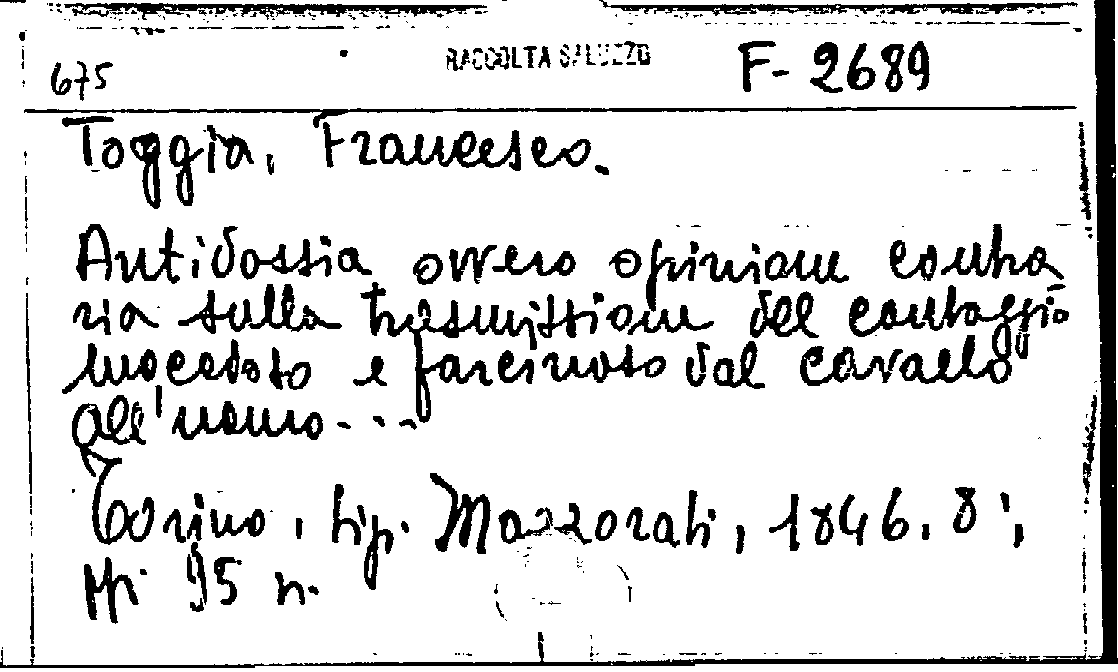 675 RACCOLTA SALUZZO F-2689
Toggia, Francesco.
Antidossia ovvero opinione contra
ria sulla trasmissione del contaggio
moccioso e farcinoso dal cavallo
all'uomo...
Torino, tip. Mazzorati, 1846. 8°,
pp. 95 n.